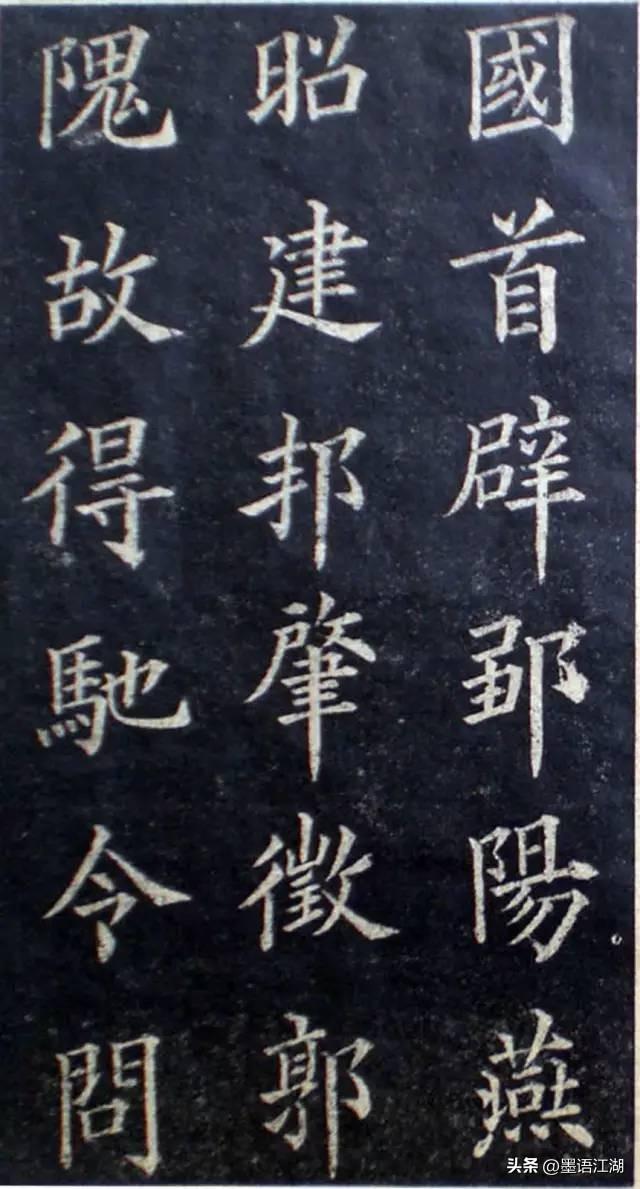 國首辟鄒陽燕
昭建邦肇徵郭
隗故得馳令問
头条 @墨语江湖